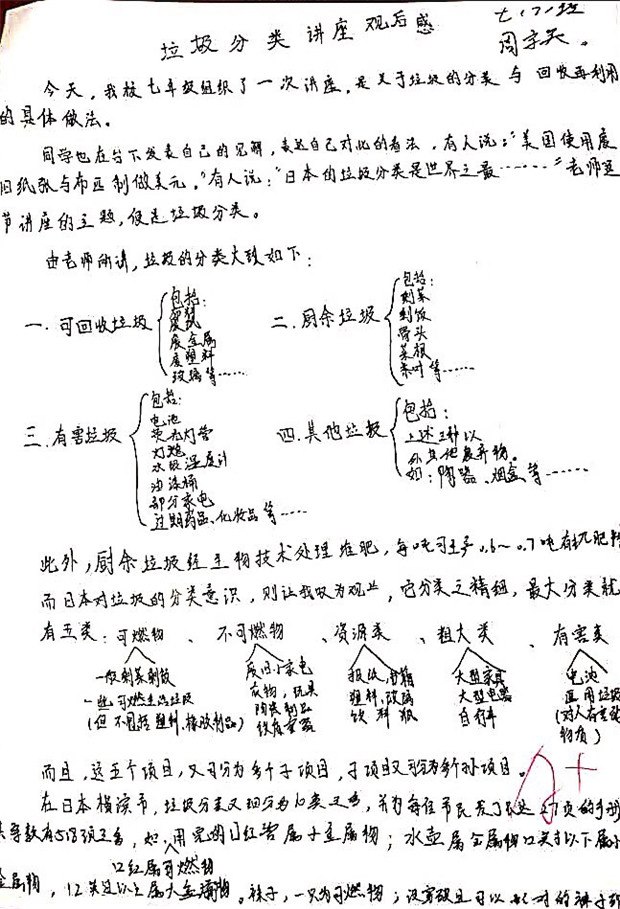 垃圾分类讲座观后感
七(7)班
周宇天。
今天,我校七年级组织了一次讲座,是关于垃圾的分类与回收再利用
的具体做法。
同学也在台下发表自己的见解,表达自己对此的看法,有人说:"美国使用废
旧纸张与布匹制做美元。"有人说:"日本的垃圾分类是世界之最……"老师这
节讲座的主题,便是垃圾分类。
由老师所讲,垃圾的分类大致如下:
一.可回收垃圾
包括:
废纸
废金属
废塑料
玻璃等……
二.厨余垃圾
包括:
剩菜
剩饭
骨头
菜根
茶叶等……
三.有害垃圾
包括:
电池
荧光灯管
灯炮
水银温度计
油漆桶
部分家电
过期药品、化妆品等……
四.其他垃圾
包括:
上述3种以
外其他废弃物。
如:陶器、烟盒等……
此外,厨余垃圾经生物技术处理堆肥,每吨可生产0.6~0.7吨有机肥料
而日本对垃圾的分类意识,则让我叹为观止,它分类之精细,最大分类就
有五类:可燃物、不可燃物、资源类、粗大类、有害类
一般剩菜剩饭
一些可燃生活垃圾
(但不包括塑料、橡胶制品)
废旧小家电
衣物,玩具
陶瓷制品
铁质
报纸,书籍
塑料,玻璃
饮料瓶
大型家具
大型电器
自行车
电池
医用垃圾
(对人有害
物质)
而且,这五个项目,又可分为多个子项目,子项目又可分为多个孙项目。
在日本横滨市,垃圾分类又细分为10类之多,并为每位市民发了长达27页的手册
其条款有518项之多,如:用完的口红管属于金属物;水壶属金属物12英寸以下属小
口红属可燃物
金属物,12英寸以上属大金属物。袜子,一只为可燃物;没穿破且可以